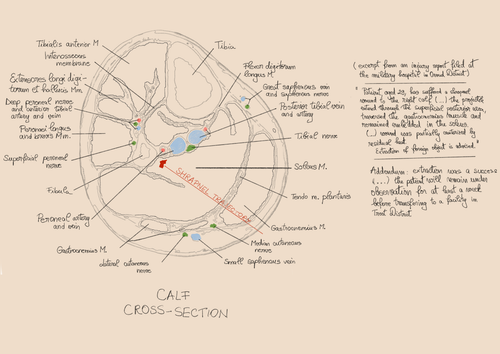 Tibialis anterior M.
Interosseous
membrane
Extensores longi digi-
torum et hallucis Mm.
Deep peroneal nerve
and anterior tibial
artery and vein
Peronei longus
and brevis Mm.
Superficial peroneal
nerve
Fibula
Peroneal artery
and vein
Gastrocnemius M.
Lateral cutaneous
nerve
Tibia
Flexor digitorum
longus M.
Great saphenous vein
and saphenous nerve
Posterior tibial vein
and artery
Tibial nerve
Soleus M.
Tendo m. plantaris
Gastrocnemius M.
Median cutaneous
nerve
Small saphenous vein
SHRAPNEL TRAJECTORY
CALF
CROSS-SECTION
(excerpt from an injury report filed at
the military hospital in District)
"Patient aged 23, has suffered a shrapnel
wound to the right calf (...) the projectile
entered through the superficial posterior area,
traversed the gastrocnemius muscle and
remained embedded in the soleus
(...) wound was partially cauterized by
residual heat.
Extraction of foreign object is advised."
Addendum: extraction was a success
(...) the patient will remain under
observation for at least a week
before transferring to a facility in
District